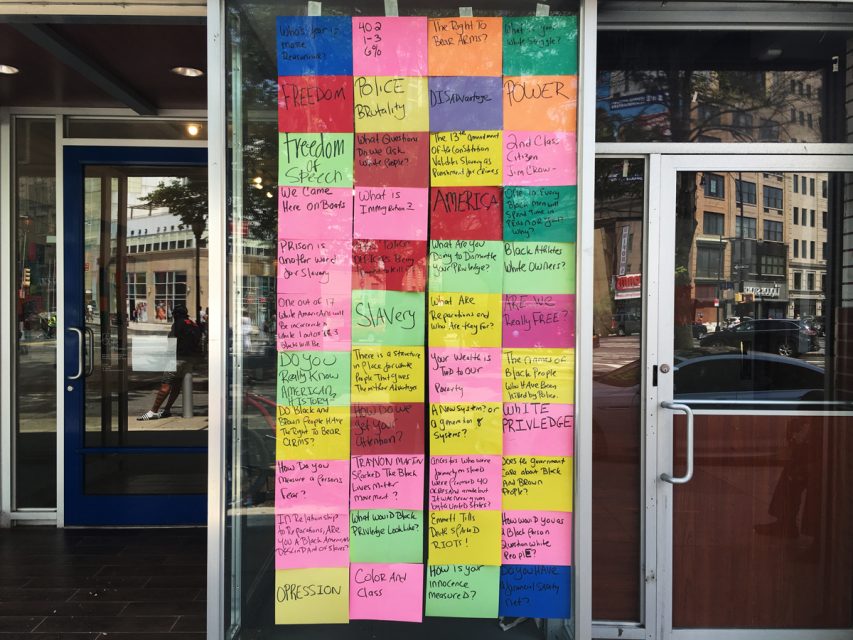 Who's fear is
more
Reasonable?
402
1-3
6%
The Right To
Bear Arms?
What is
White Struggle?
FREEDOM
POLICE
BRutality
DISADvantage
POWER
Freedom
OF
Speech
What Questions
Do We Ask
White People?
The 13th Amendment
Of the Constitution
Validates Slavery as
Punishment for Crimes
2nd Class
Citizen
Jim Crow
We Came
Here on Boats
What is
Immigration?
AMERICA
One in Every
Black men will
Spend Time in
Prison or Jail
Why?
Prison is
another word
for Slavery
Police
Officers Being
What Are You
Doing to Dismantle
Your Privledge?
Black Athletes
White Owners?
One out of 17
White Americans will
Be incarcerated
While 1 out of 3
Blacks Will Be
SLAVERY
What Are
Reparations and
Who Are they for?
ARE We
Really FREE?
DO YOU
Really Know
AMERICAN
HISTORY
There is a structure
in Place for white
People That Gives
Them their Advantages
Your Wealth is
Tied to Our
Poverty
The names of
Black People
Who HAve Been
Killed by Police
Do Black and
Brown People Have
The Right To BEAR
ARMS?
How Do We
Get Your
Attention?
A New System? or
a generation of
Systems?
WHITE
PRIVLEDGE
How Do You
measure a Persons
Fear?
TRAYVON MARTIN
SPARKeD The Black
Lives Matter
movement?
Ancestors Who were
formerly enslaved
were Promised 40
acres and a mule but
It was never given
by the United States?
Does the government
Care about Black
AND BROWN
People?
In Relationship
to Reparations, ARE
YOU A Black American
DESCENDANT of Slaves?
What Would Black
PRIVledge Look Like?
Emmett Tills
Death SPARkeD
RIOTS!
How would You as
a Black Person
Question White
People?
OPRESSION
Color And
Class
How is Your
innocence
measureD?
Do you HAVE
A financial Safety
net?